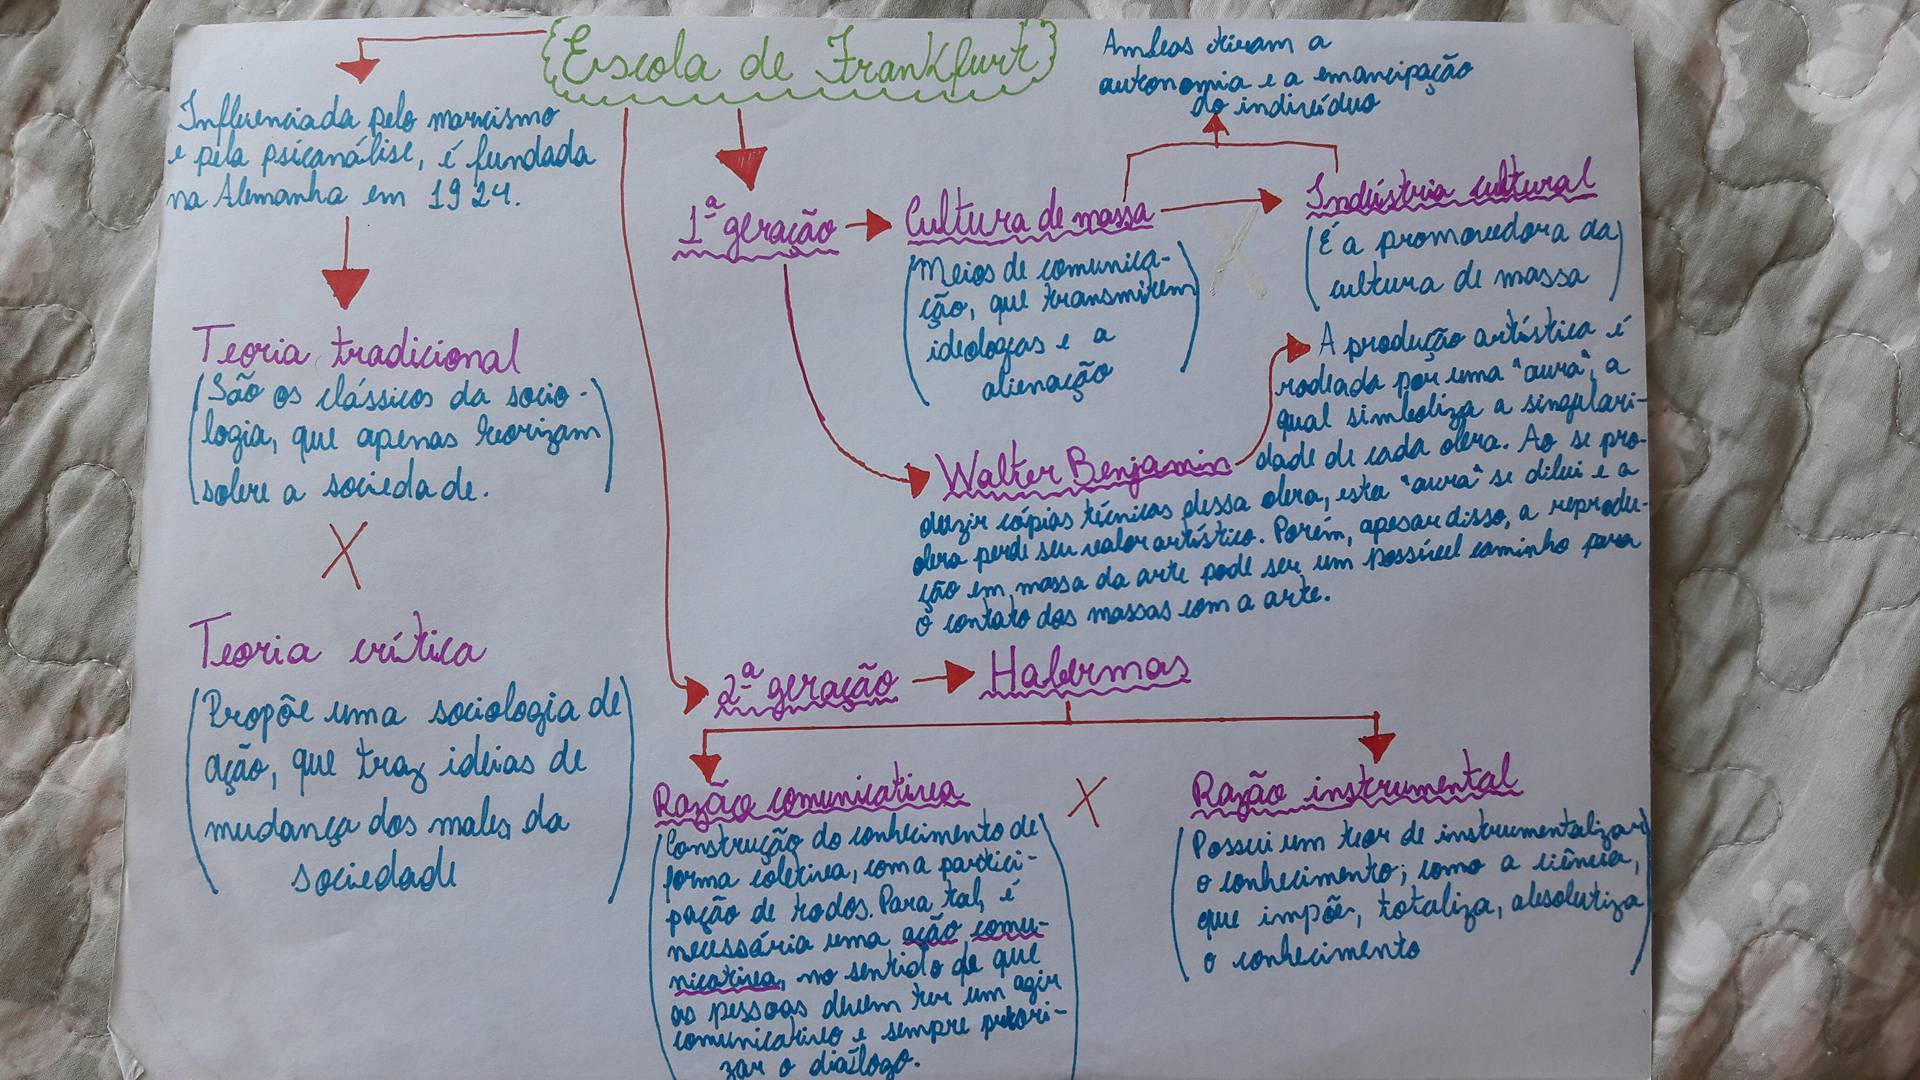 Escola de Frankfurt
Influenciada pelo marxismo
e pela psicanálise, é fundada
na Alemanha em 1924.
Teoria tradicional
(São os clássicos da socio-
logia, que apenas teorizam
sobre a sociedade.)
X
Teoria crítica
(Propõe uma sociologia de
ação, que traz ideias de
mudança dos males da
sociedade)
1ª geração
Cultura de massa
(Meios de comunica-
ção, que transmitem
ideologias e a
alienação)
Ambas tiram a
autonomia e a emancipação
do indivíduo
Indústria cultural
(É a promovedora da
cultura de massa)
Walter Benjamin
A produção artística é
rodeada por uma "aura", a
qual simboliza a singulari-
dade de cada obra. Ao se pro-
duzir cópias técnicas dessa obra, esta "aura" se dilui e a
obra perde seu valor artístico. Porém, apesar disso, a reprodu-
ção em massa da arte pode ser um possível caminho para
o contato das massas com a arte.
2ª geração
Habermas
Razão comunicativa
(Construção do conhecimento de
forma coletiva, com a partici-
pação de todos. Para tal, é
necessária uma ação comu-
nicativa, no sentido de que
as pessoas devem ter um agir
comunicativo e sempre priori-
zar o diálogo.
X
Razão instrumental
(Possui um teor de instrumentalizar
o conhecimento; como a ciência,
que impõe, totaliza, absolutiza
o conhecimento)